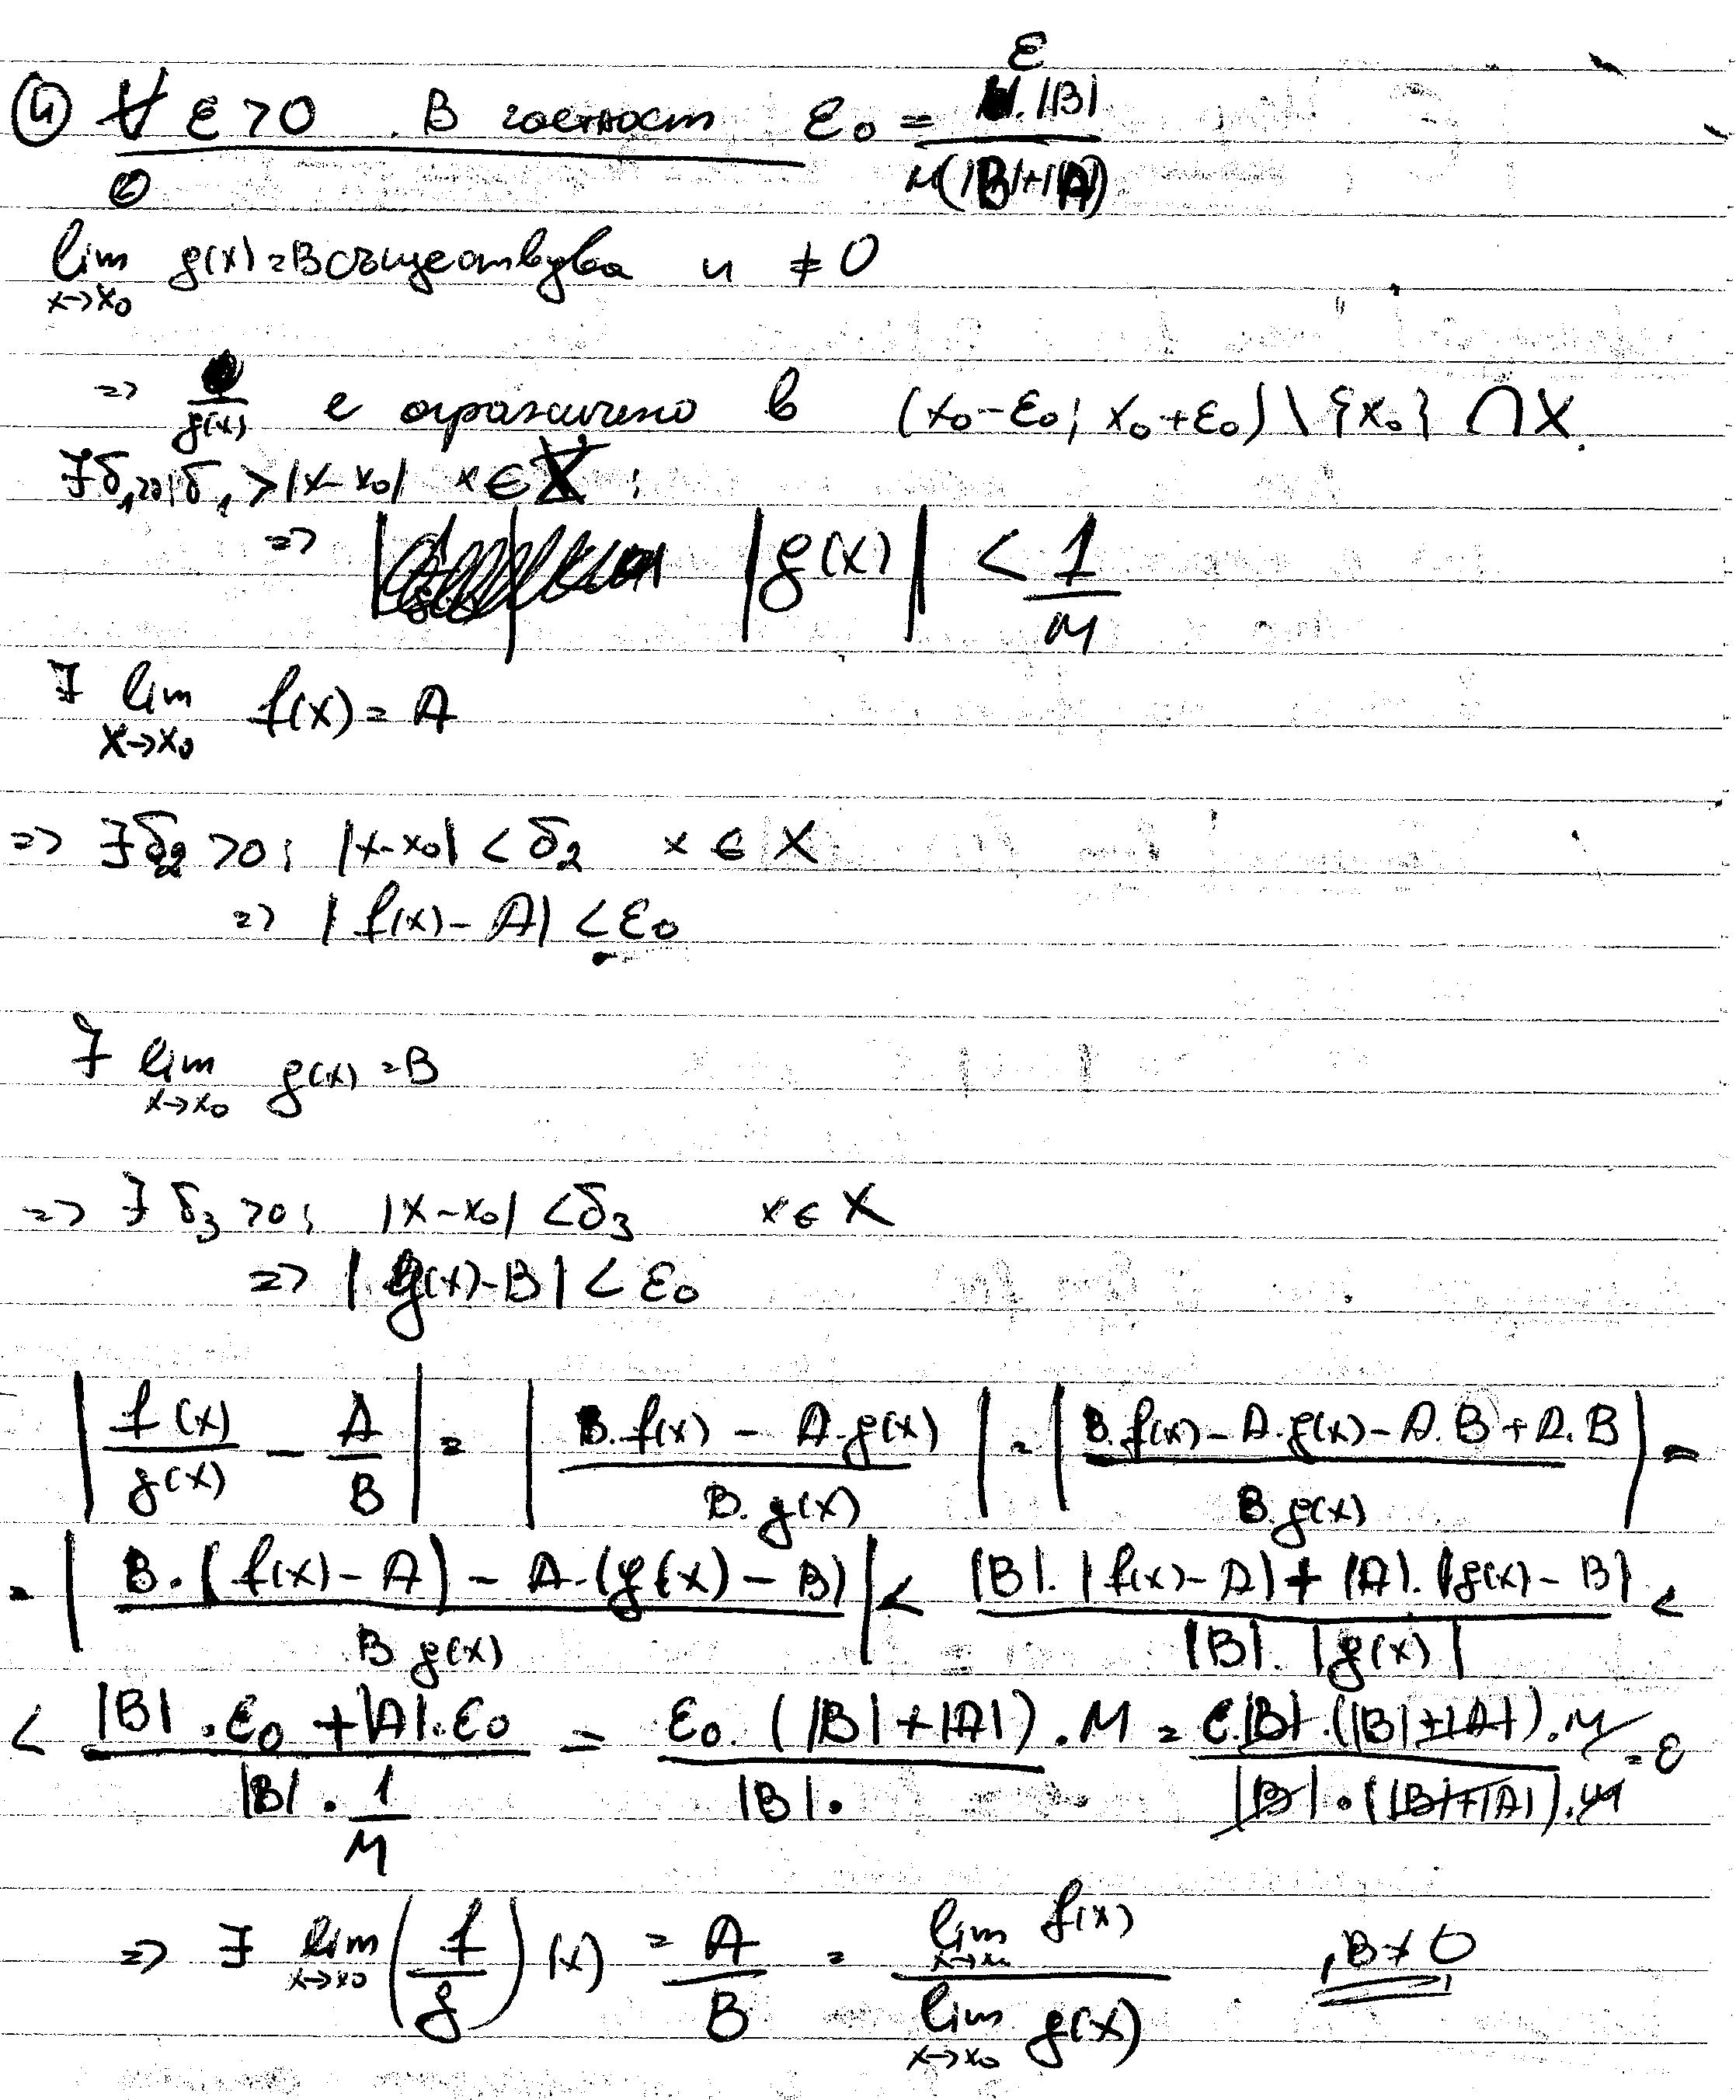 ④ ∀ ε > 0. В частност ε₀ = ε.|B| / M(|B|+|A|)
lim x→x₀ g(x) = B съществува и ≠ 0
=> /g(x) е ограничено в (x₀-ε₀; x₀+ε₀) \ {x₀} ∩ X.
∃ δ₁>0; δ₁ > |x-x₀| x ∈ X :
=> |g(x)| < 1/M
∃ lim x→x₀ f(x) = A
=> ∃ δ₂ > 0; |x-x₀| < δ₂ x ∈ X
=> |f(x) - A| < ε₀
∃ lim x→x₀ g(x) = B
=> ∃ δ₃ > 0; |x-x₀| < δ₃ x ∈ X
=> |g(x) - B| < ε₀
|f(x)/g(x) - A/B| = |(B.f(x) - A.g(x)) / B.g(x)| = |(B.f(x) - A.g(x) - A.B + A.B) / B.g(x)| =
= |(B.(f(x) - A) - A.(g(x) - B)) / B g(x)| < (|B|.|f(x) - A| + |A|.|g(x) - B|) / |B|.|g(x)| <
< (|B|.ε₀ + |A|.ε₀) / (|B|.1/M) = ε₀.(|B|+|A|).M / |B|. = ε.|B|.(|B|+|A|).M / |B|.(|B|+|A|).M = ε
=> ∃ lim x→x₀ (f/g)(x) = A/B = lim x→x₀ f(x) / lim x→x₀ g(x) , B ≠ 0